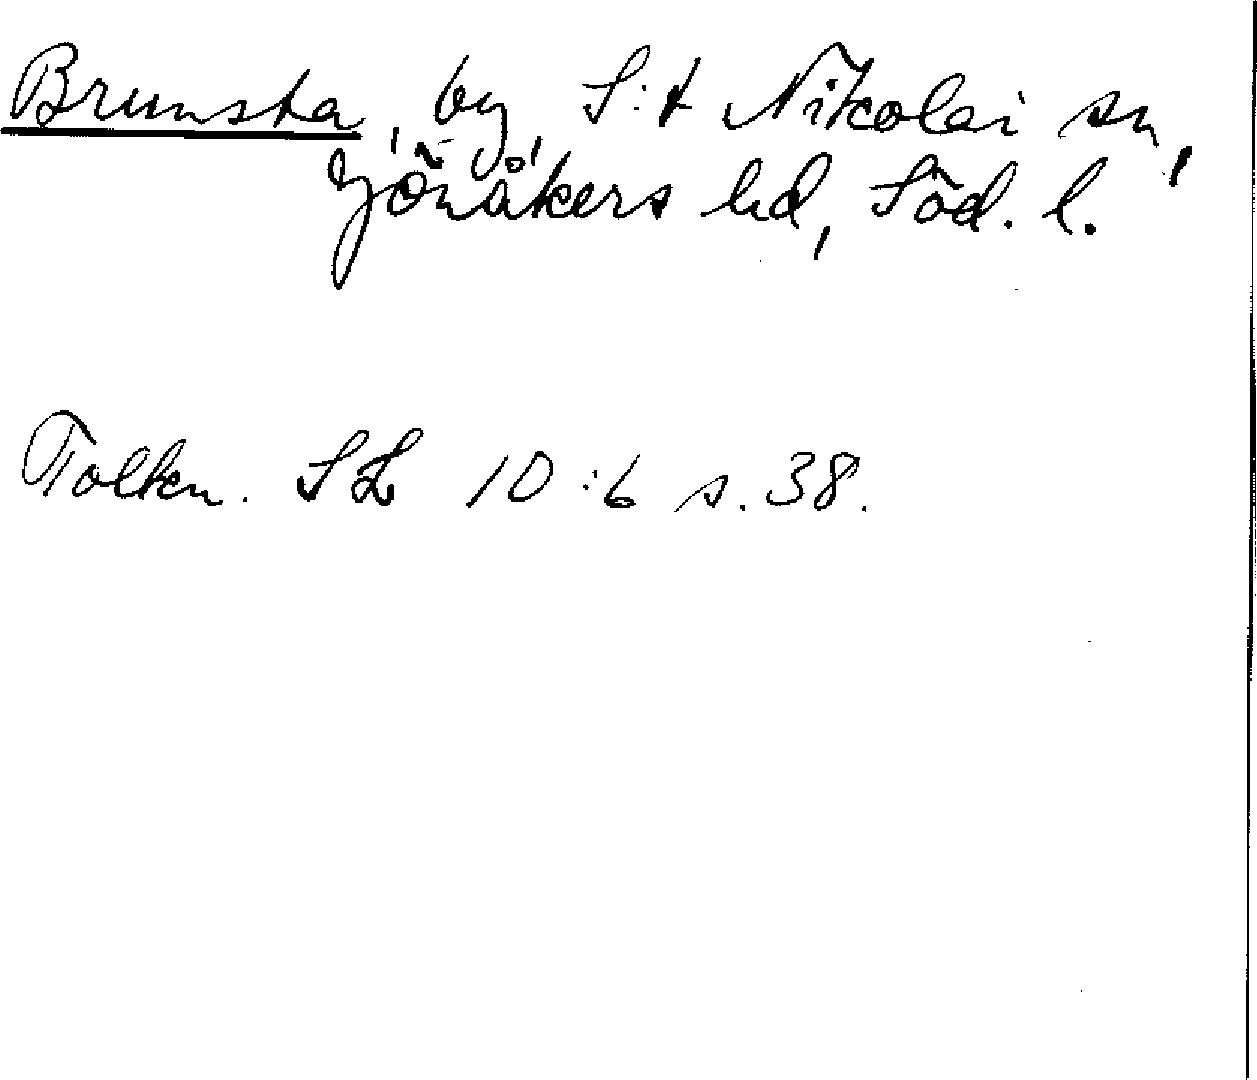 Brunsta, by, S:t Nikolai sn,
Jönåkers hd, Söd. l.
Tolkn. SL 10:6 s. 38.